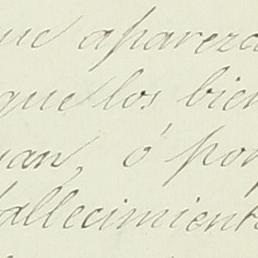 que aparezca
que los bien
uan, ó por
fallecimient